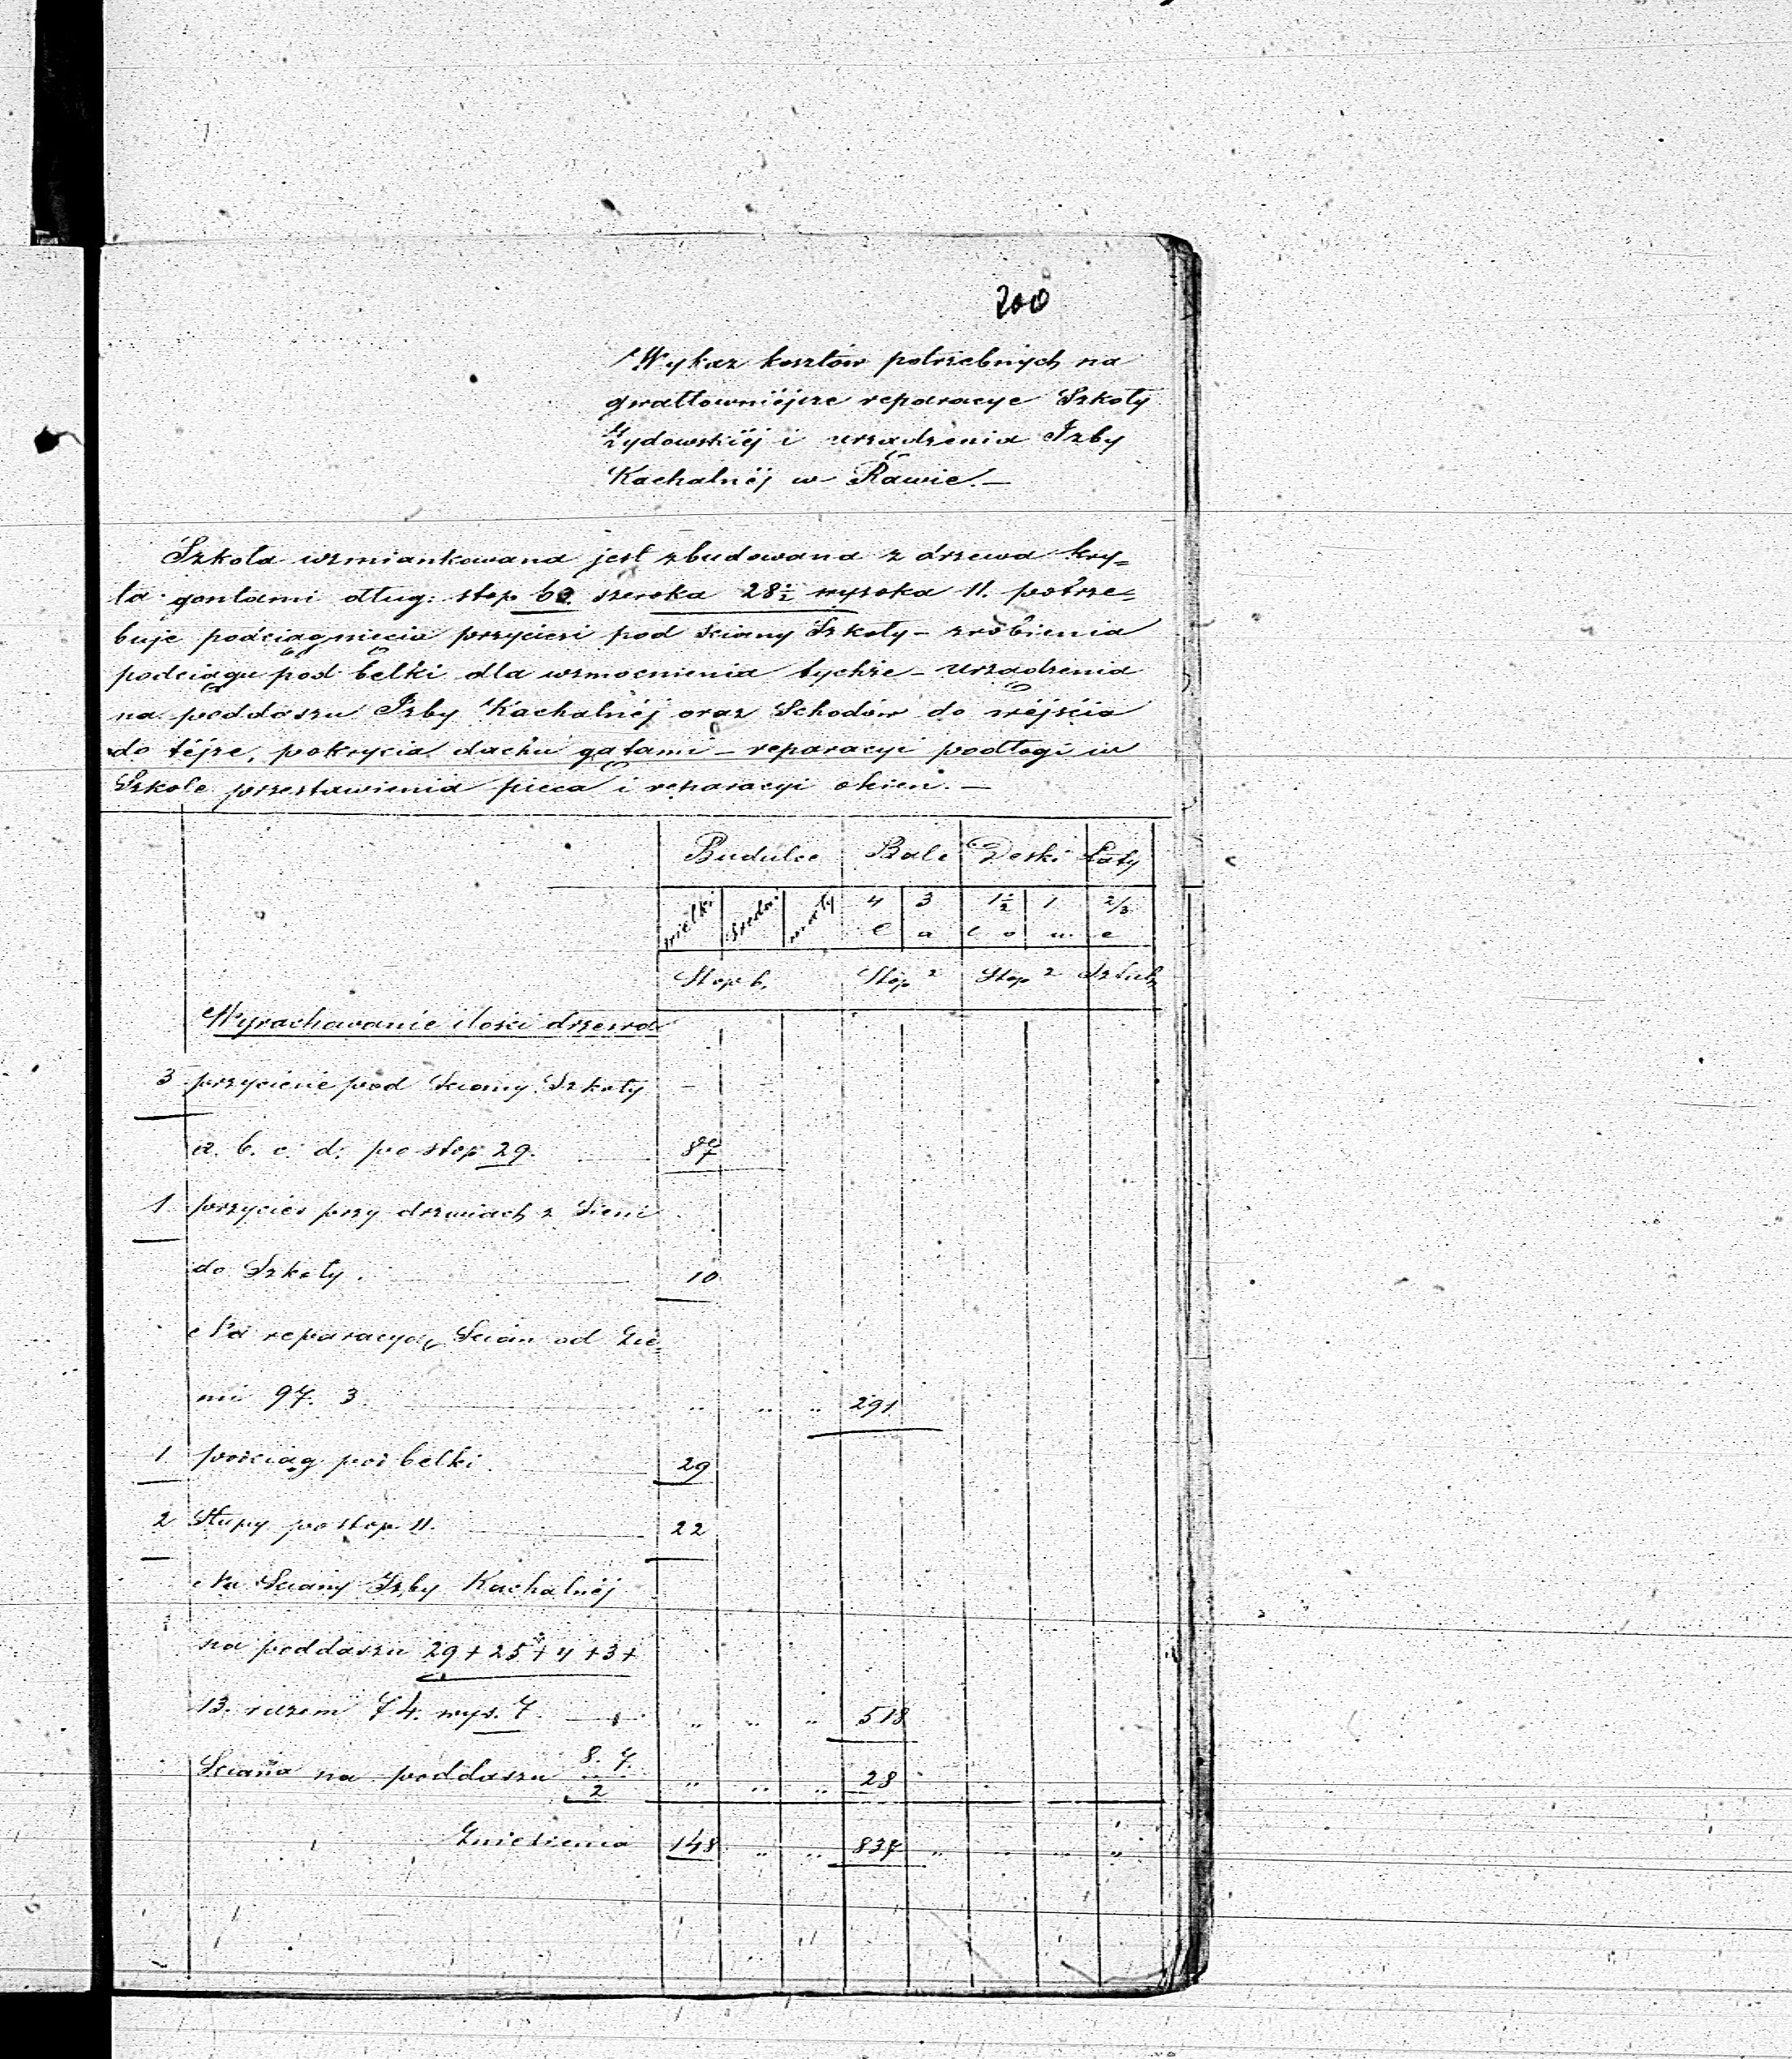 200
Wykaz kosztów potrzebnych na
gwałtowniéjsze reparacye Szkoły
Żydowskiéj i urządzenia Izby
Kachalnéj w Rawie. —
Szkoła wzmiankowana jest zbudowana z drzewa kry=
ta gontami dług: stop 60. szeroka 28½ wysoka 11. potrze=
buje podciągnięcia przycieśi pod ściany Szkoły – zrobienia
podciągu pod belki dla wzmocnienia tychże – urządzenia
na poddaszu Izby Kachalnéj oraz Schodów do wéjścia
do téjże, pokrycia dachu gątami – reparacyi podłogi w
Szkole przestawienia pieca i reparacyi okien. —
Budulce Bale Deski Łaty
wielki średni mały 4 3 1½ 1 2/3
c a l o w e
Stop b. Stop 2 Stop 2 Sztuk
Wyrachowanie ilości drzewa
3 przyciesie pod Sciany Szkoły –
a. b. c. d. po stop 29. 87
1 przycieś przy drzwiach z Sieni
do Szkoły. 10
Na reparacyą Scian od Zie=
mi 97. 3. „ „ „ 291
1 podciąg pod belki. 29
2 Słupy po stop 11. 22
Na Sciany Izby Kachalnéj
na poddaszu 29 + 25 + 4 + 3 +
13. razem 74. wys. 7. „ „ „ 518
Sciana na poddaszu 8. 7. / 2 „ „ „ 28
Zniesienia 148 „ „ 837 „ „ „ „